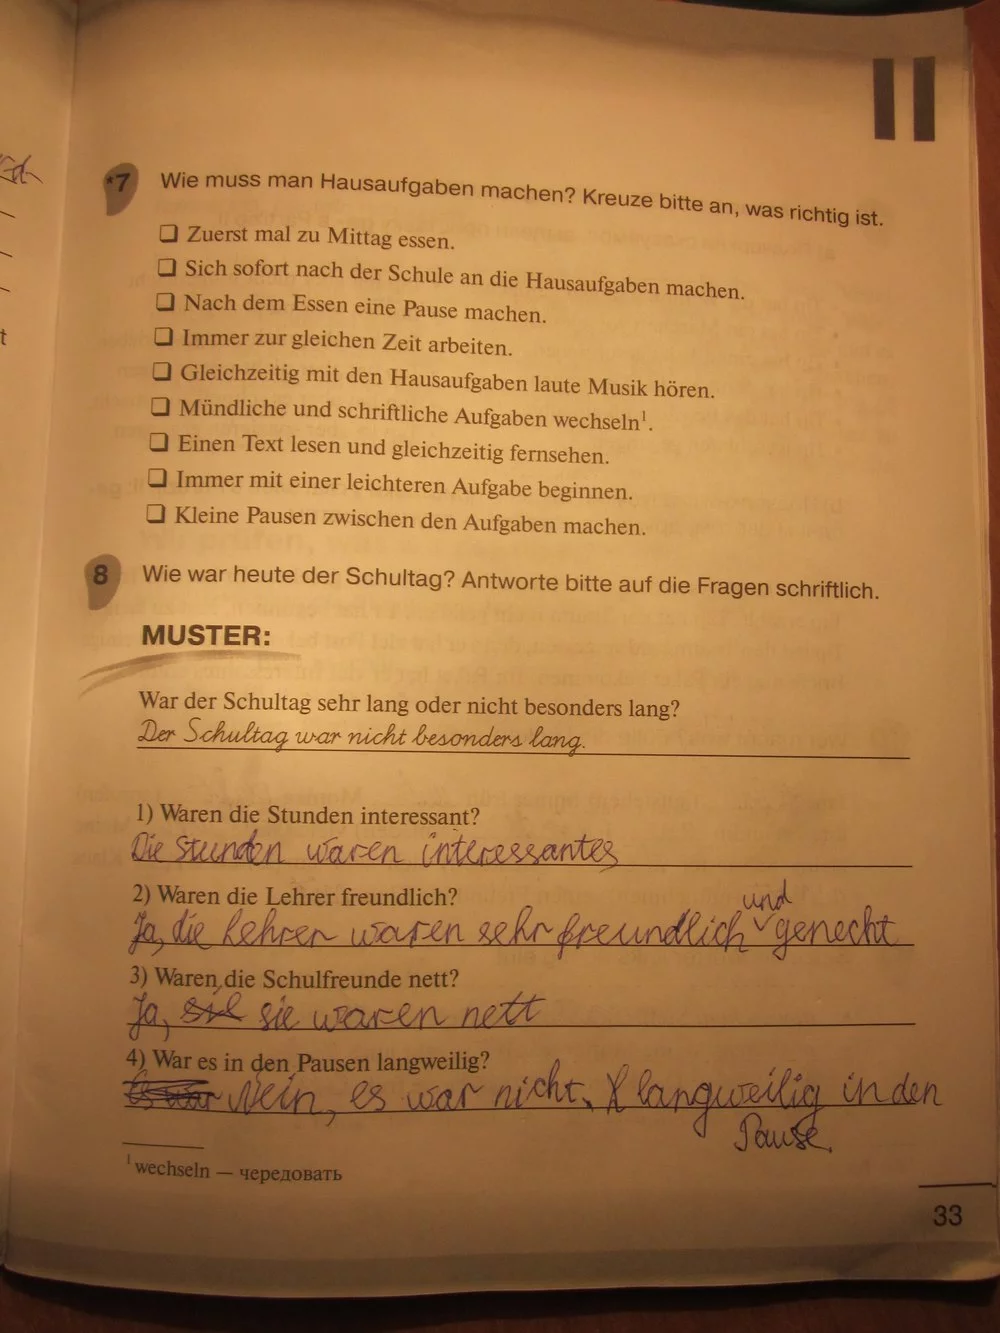 II
*7 Wie muss man Hausaufgaben machen? Kreuze bitte an, was richtig ist.
❑ Zuerst mal zu Mittag essen.
❑ Sich sofort nach der Schule an die Hausaufgaben machen.
❑ Nach dem Essen eine Pause machen.
❑ Immer zur gleichen Zeit arbeiten.
❑ Gleichzeitig mit den Hausaufgaben laute Musik hören.
❑ Mündliche und schriftliche Aufgaben wechseln¹.
❑ Einen Text lesen und gleichzeitig fernsehen.
❑ Immer mit einer leichteren Aufgabe beginnen.
❑ Kleine Pausen zwischen den Aufgaben machen.
8 Wie war heute der Schultag? Antworte bitte auf die Fragen schriftlich.
MUSTER:
War der Schultag sehr lang oder nicht besonders lang?
Der Schultag war nicht besonders lang.
1) Waren die Stunden interessant?
Die Stunden waren interessantes
2) Waren die Lehrer freundlich?
Ja, die Lehrer waren sehr freundlich und genecht
3) Waren die Schulfreunde nett?
Ja, sie waren nett
4) War es in den Pausen langweilig?
Nein, es war nicht langweilig in den
Pause.
¹ wechseln — чередовать
33